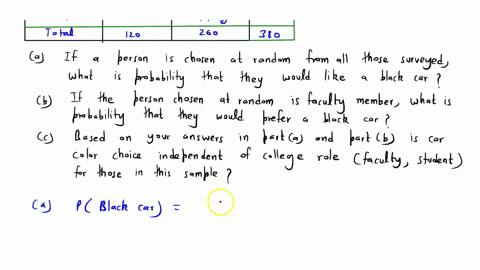 Total 120 260 380
(a) If a person is chosen at random from all those surveyed,
what is probability that they would like a black car ?
(b) If the person chosen at random is faculty member, what is
probability that they would prefer a black car ?
(c) Based on your answers in part(a) and part(b) is car
color choice independent of college role (faculty, student)
for those in this sample ?
(a) P( Black car) =